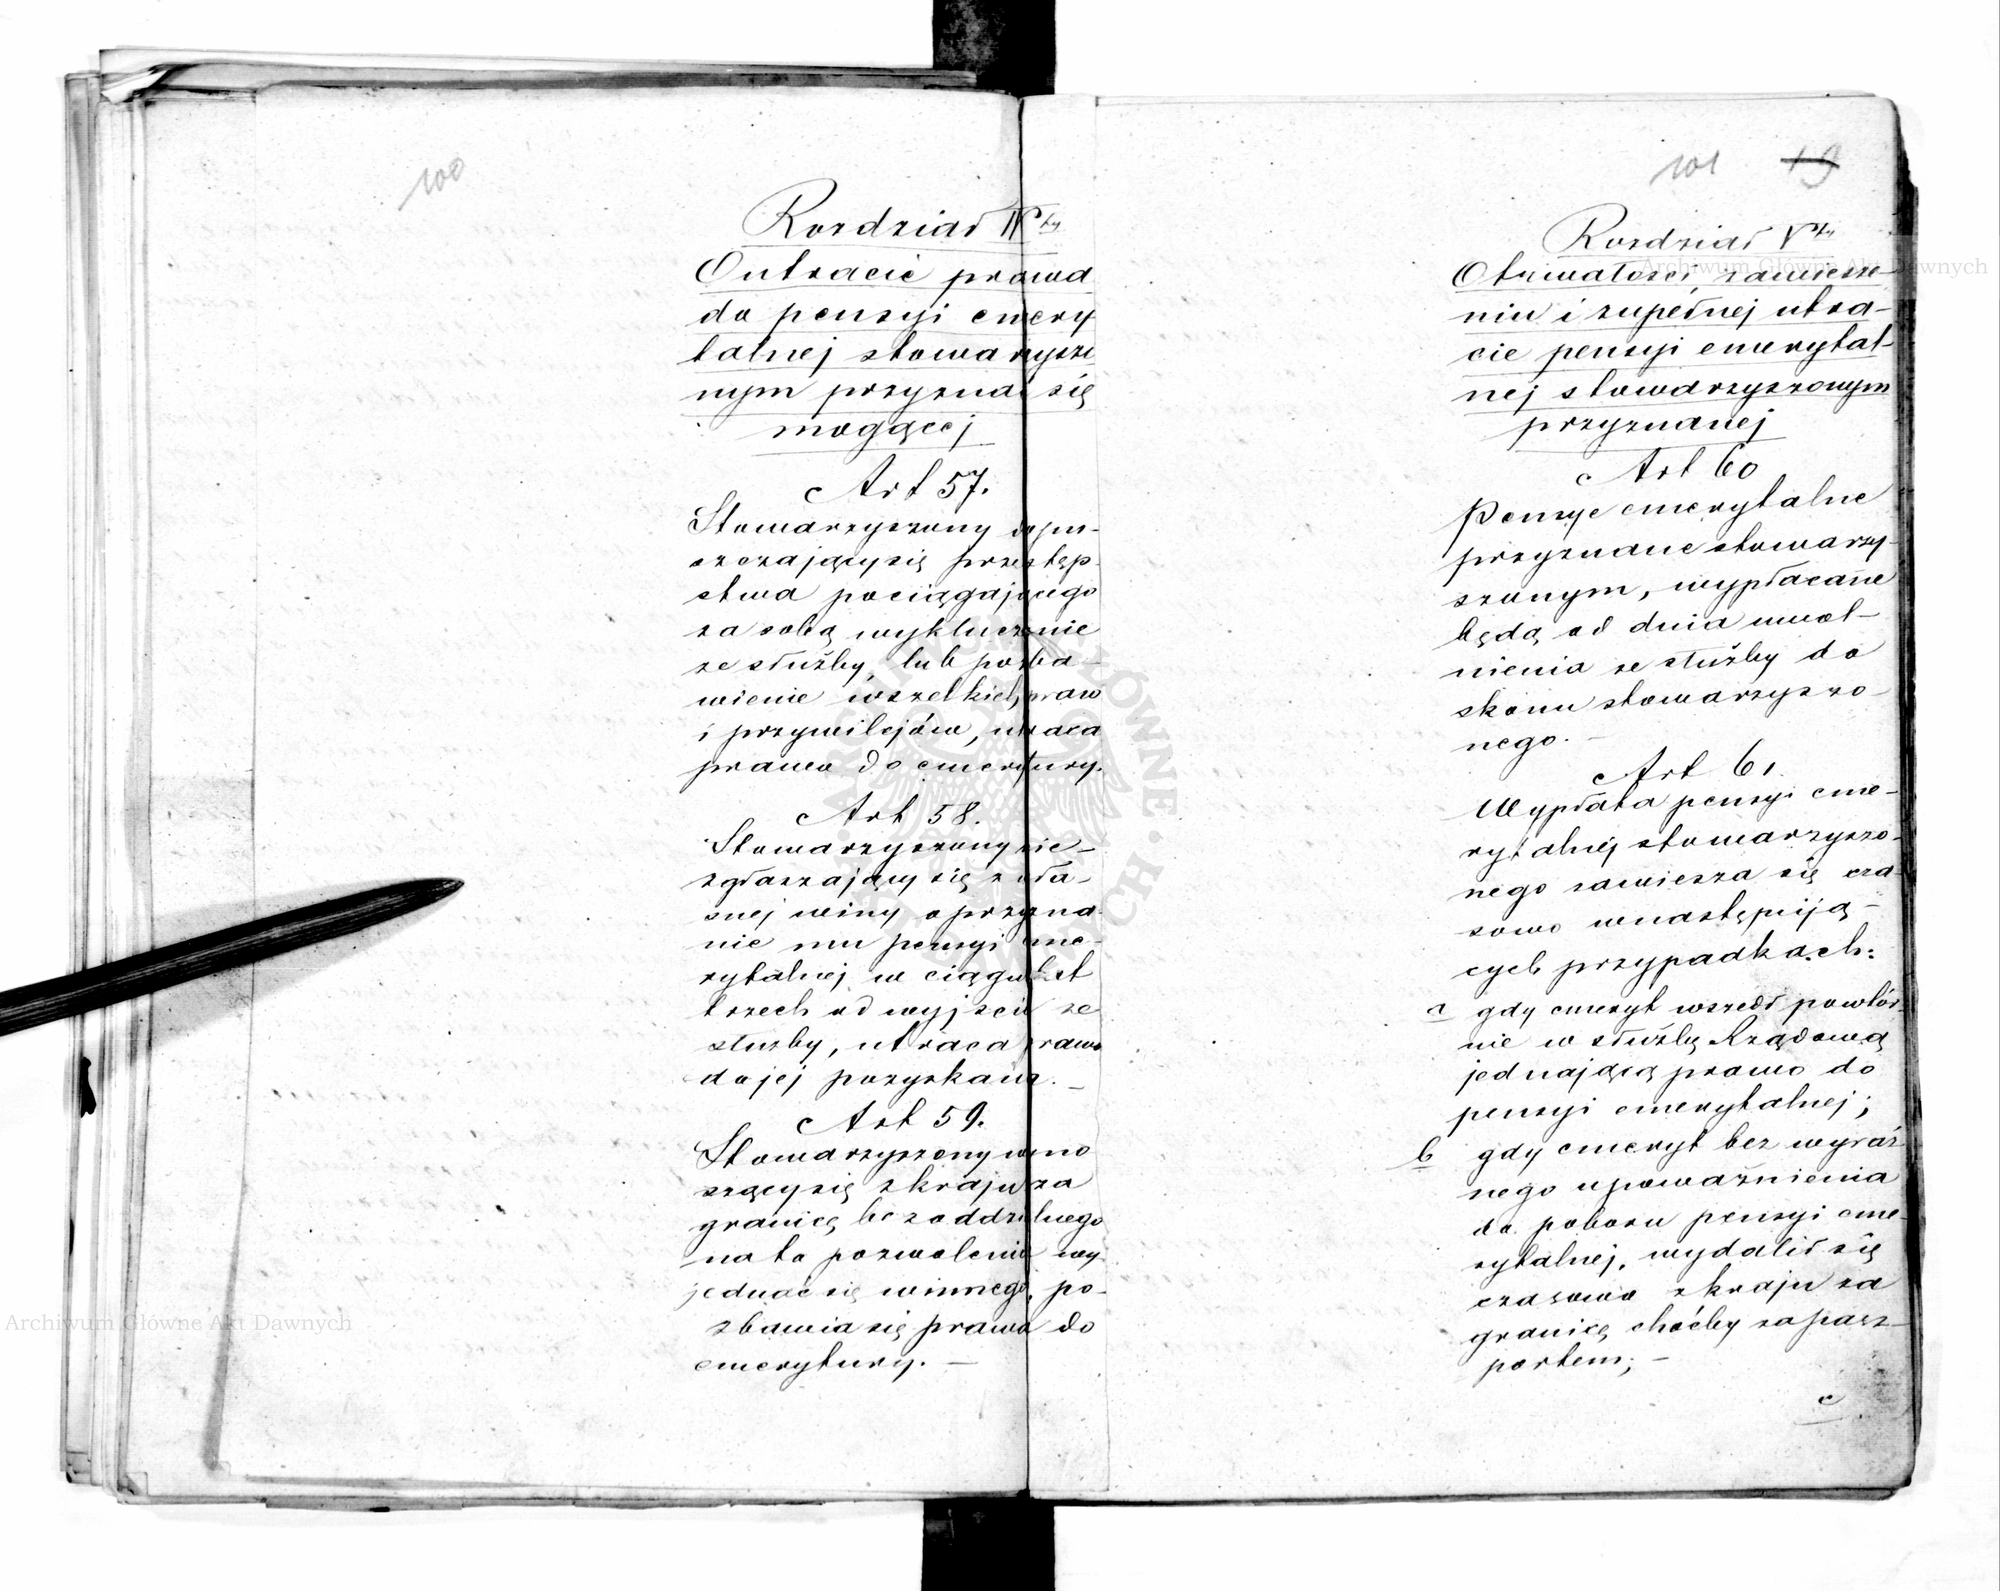 100
Rozdział IVty
O utracie prawa
do pensyi emery
talnej stowarzysze
nym przyznać się
mogącej
Art 57.
Stowarzyszony dopu-
szczający się przestęp-
stwa pociągającego
za sobą wykluczenie
ze służby, lub pozba-
wienie wszelkich praw
i przywilejów, utraca
prawo do emerytury.
Art 58.
Stowarzyszony nie-
zgłaszający się z wła-
snej winy o przyzna-
nie mu pensyi eme-
rytalnej w ciągu lat
trzech od wyjścia ze
służby, utraca prawo
do jej pozyskania. —
Art 59.
Stowarzyszony wyno
szący się z kraju za
granicę bez oddzielnego
na to pozwolenia wy-
jednać się winnego, po-
zbawia się prawa do
emerytury. —
101 19
Rozdział Vty
O trwałości, zawiesze-
niu i zupełnej utra-
cie pensyi emerytal-
nej stowarzyszonym
przyznanej
Art 60
Pensye emerytalne
przyznane stowarzy-
szonym, wypłacane
będą od dnia uwol-
nienia ze służby do
skonu stowarzyszo-
nego. —
Art 61.
Wypłata pensyi eme-
rytalnej stowarzyszo-
nego zawiesza się cza-
sowo w następują-
cych przypadkach:
a gdy emeryt wszedł powtór-
nie w służbę Rządową
jednającą prawo do
pensyi emerytalnej;
b gdy emeryt bez wyraź-
nego upoważnienia
do poboru pensyi eme-
rytalnej, wydalił się
czasowo z kraju za
granicę choćby za pasz-
portem; —
c
Archiwum Główne Akt Dawnych
Archiwum Główne Akt Dawnych